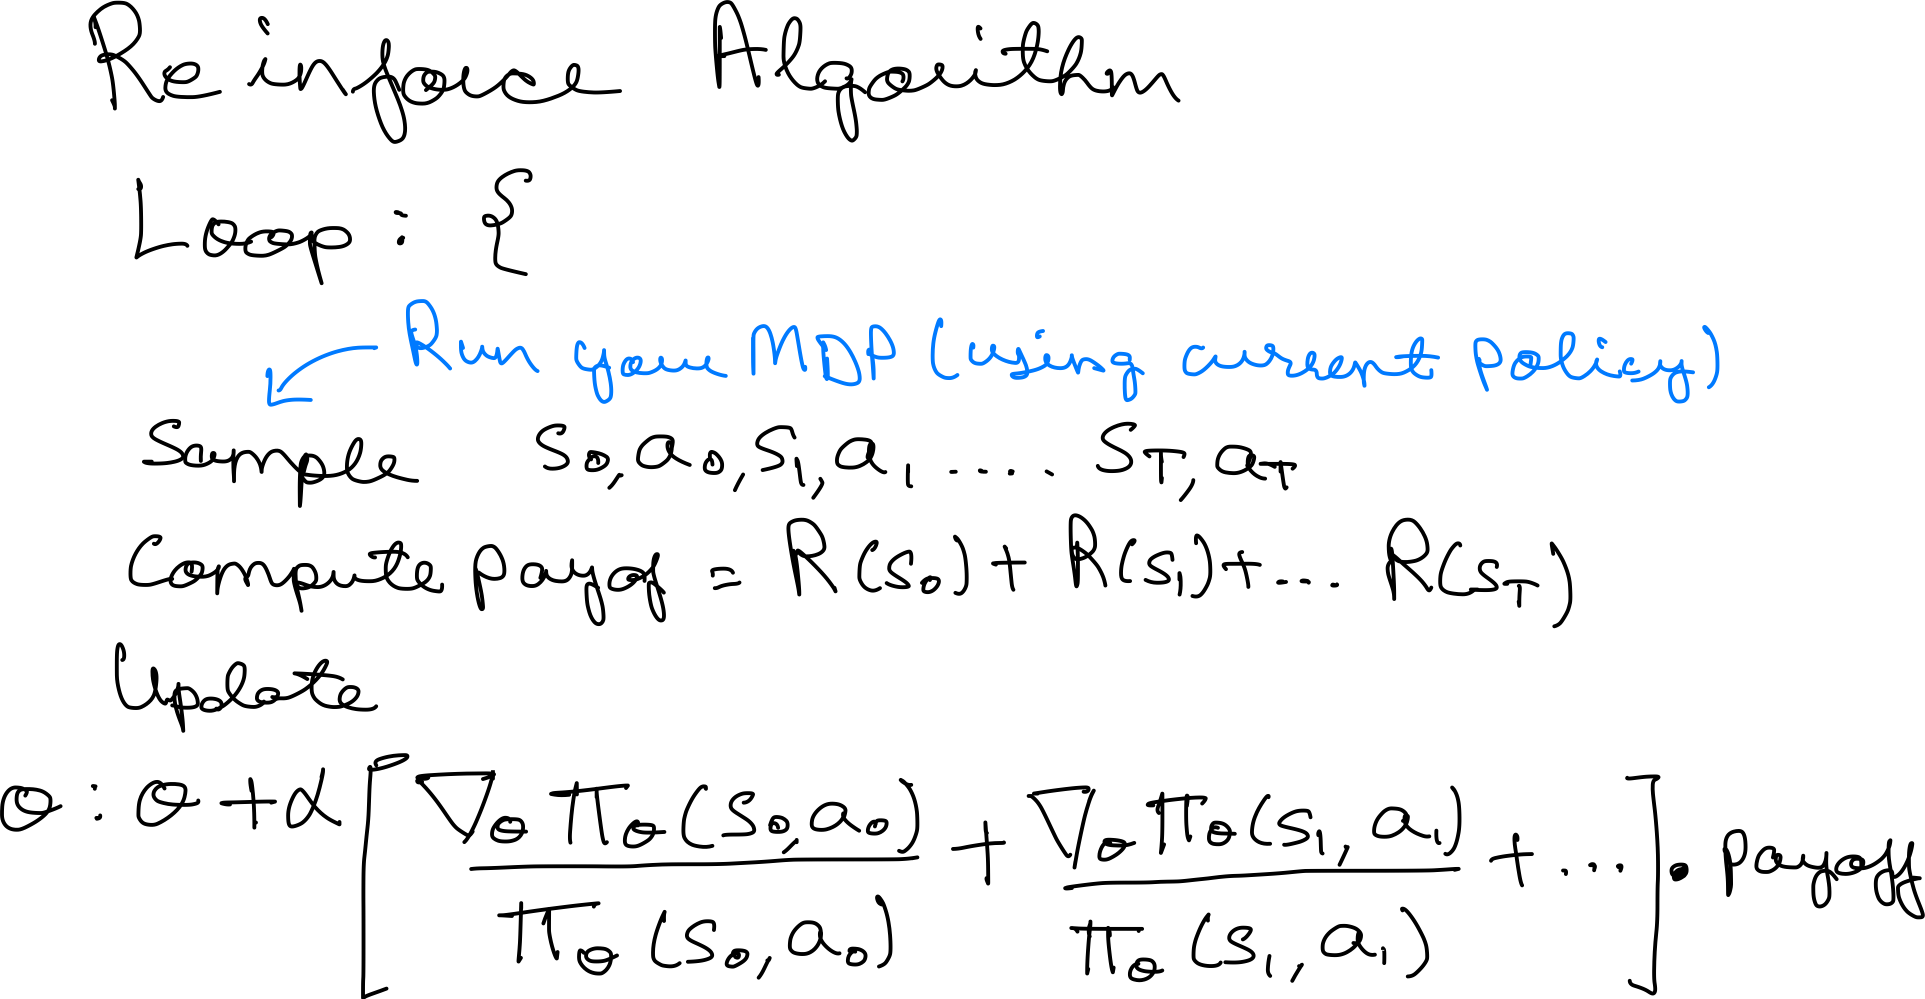 Reinforce Algorithm
Loop : {
Run your MDP (using current policy)
Sample S₀, a₀, S₁, a₁ .... S_T, a_T
Compute payof = R(S₀) + R(S₁) + ... R(S_T)
Update
θ : θ + α [ ∇_θ π_θ(S₀, a₀) / π_θ(S₀, a₀) + ∇_θ π_θ(S₁, a₁) / π_θ(S₁, a₁) + ... ] . payoff